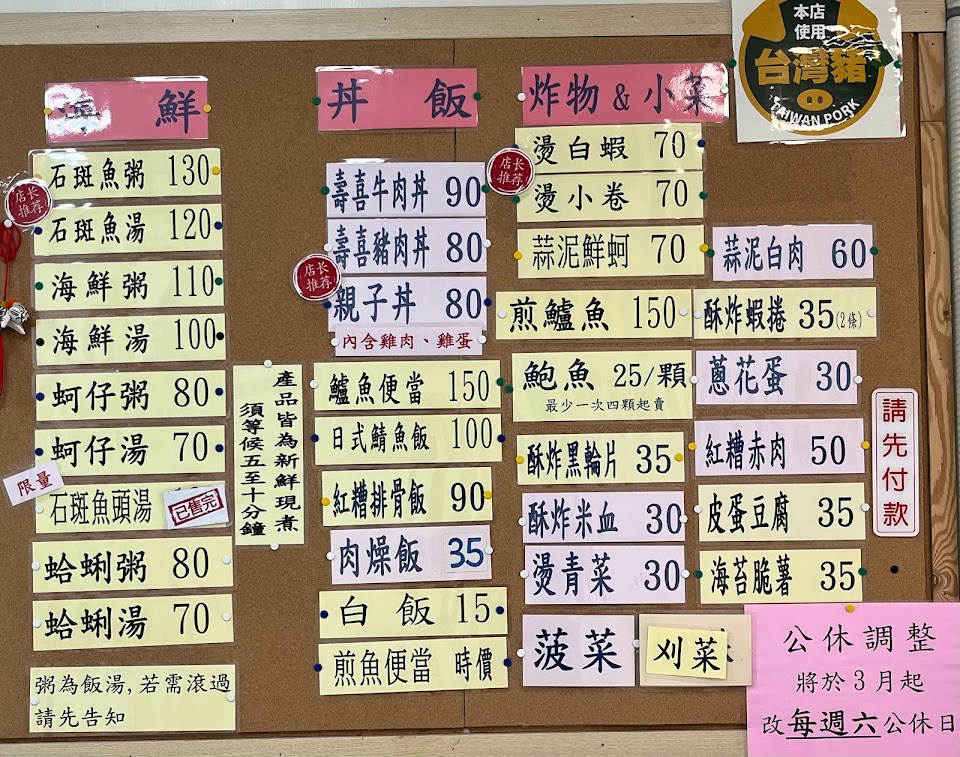 本店
使用
台灣豬
TAIWAN PORK
海鮮
店长
推荐
石斑魚粥 130
石斑魚湯 120
海鮮粥 110
海鮮湯 100
蚵仔粥 80
蚵仔湯 70
限量
石斑魚頭湯
已售完
蛤蜊粥 80
蛤蜊湯 70
粥為飯湯,若需滾過
請先告知
產品皆為新鮮現煮
須等候五至十分鐘
丼飯
壽喜牛肉丼 90
壽喜豬肉丼 80
店长
推荐
親子丼 80
內含雞肉、雞蛋
鱸魚便當 150
日式鯖魚飯 100
紅糟排骨飯 90
肉燥飯 35
白飯 15
煎魚便當 時價
炸物&小菜
店长
推荐
燙白蝦 70
燙小卷 70
蒜泥鮮蚵 70
煎鱸魚 150
鮑魚 25/顆
最少一次四顆起賣
酥炸黑輪片 35
酥炸米血 30
燙青菜 30
菠菜
刈菜
蒜泥白肉 60
酥炸蝦捲 35(2條)
蔥花蛋 30
紅糟赤肉 50
皮蛋豆腐 35
海苔脆薯 35
請先付款
公休調整
將於3月起
改每週六公休日